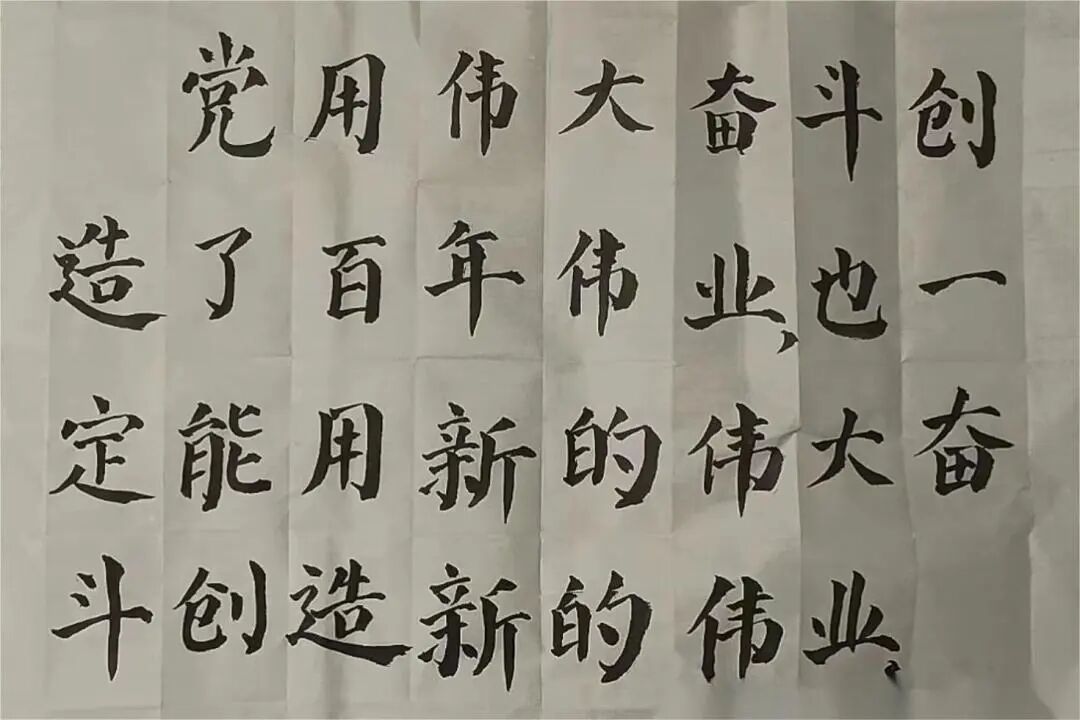 党用伟大奋斗创
造了百年伟业,也一
定能用新的伟大奋
斗创造新的伟业,